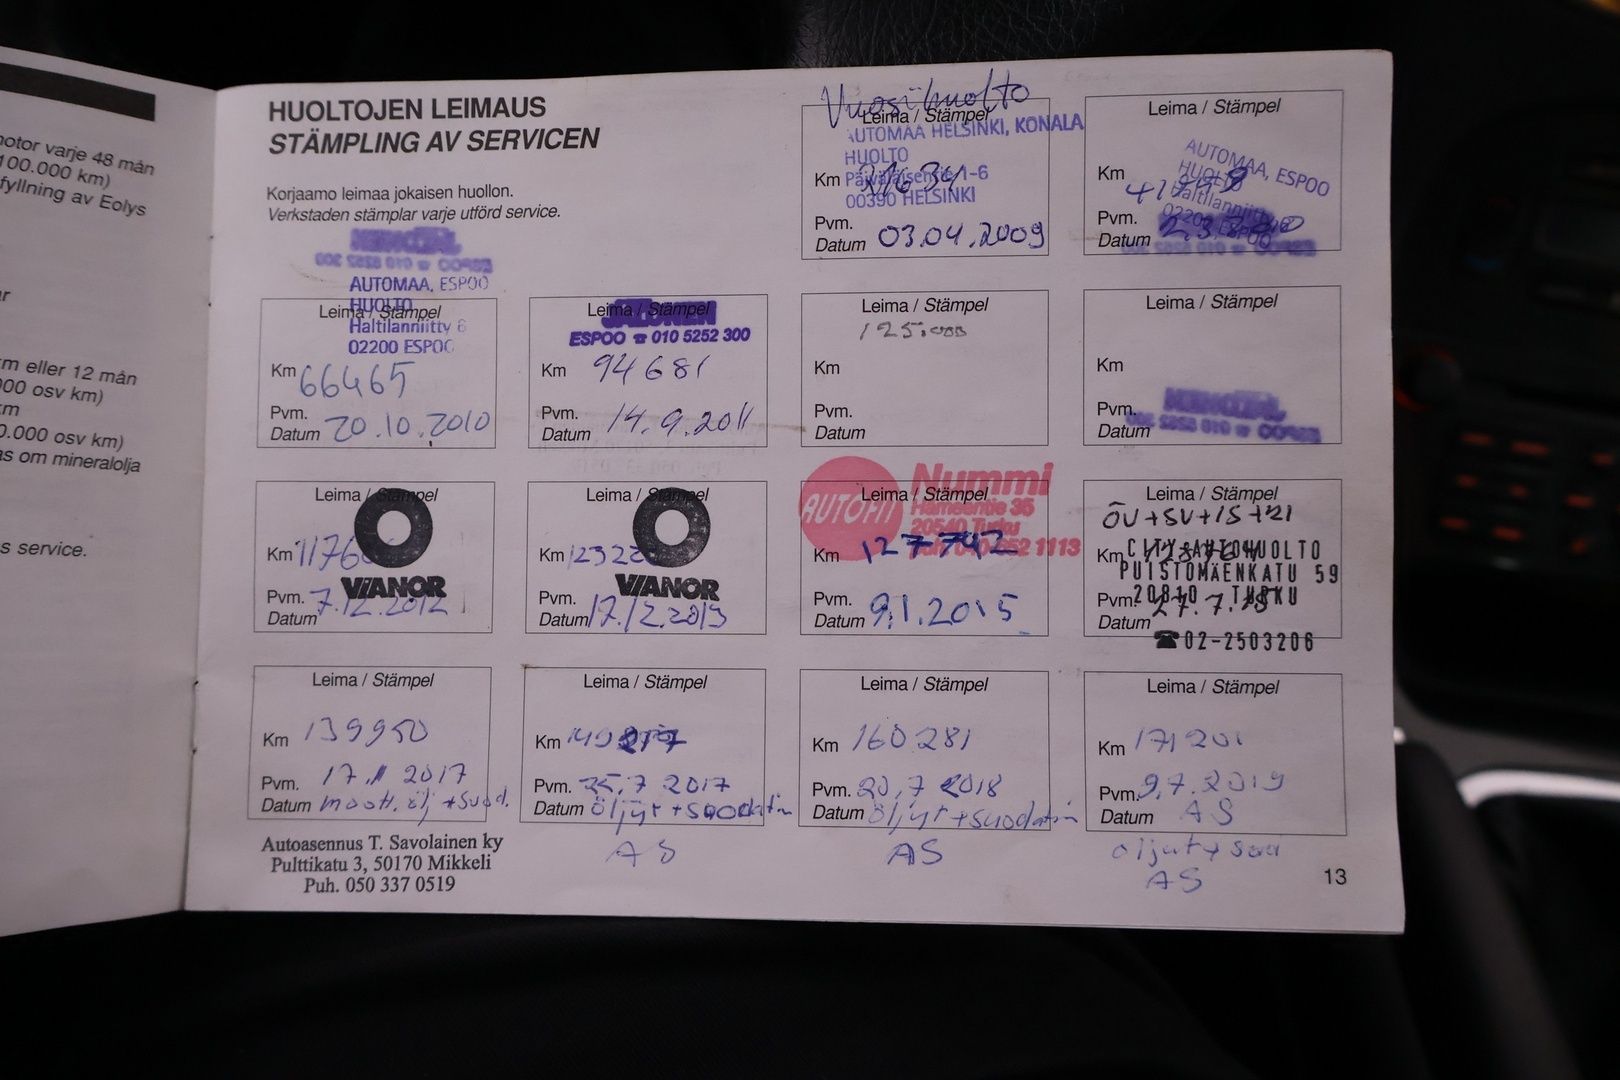 otor varje 48 mån
100.000 km)
fyllning av Eolys
r
m eller 12 mån
000 osv km)
km
0.000 osv km)
as om mineralolja
s service.
HUOLTOJEN LEIMAUS
STÄMPLING AV SERVICEN
Korjaamo leimaa jokaisen huollon.
Verkstaden stämplar varje utförd service.
Vuosihuolto
Leima / Stämpel
AUTOMAA HELSINKI, KONALA
HUOLTO
Km
00390 HELSINKI
Pvm.
Datum 03.04.2009
Leima / Stämpel
AUTOMAA, ESPOO
HUOLTO
Km
Haltilanniitty
02200 ESPOO
Pvm.
Datum
ESPOO ☎ 010 5252 300
AUTOMAA, ESPOO
HUOLTO
Leima / Stämpel
Haltilanniitty 6
02200 ESPOO
Km 66465
Pvm.
Datum 20.10.2010
Leima / Stämpel
ESPOO ☎ 010 5252 300
Km 94681
Pvm.
Datum 14.9.2011
Leima / Stämpel
125.000
Km
Pvm.
Datum
Leima / Stämpel
Km
Pvm.
Datum
ESPOO ☎ 010 5252 300
Leima / Stämpel
Km
VIANOR
Pvm. 7.12.2012
Datum
Leima / Stämpel
Km
VIANOR
Pvm.
Datum 17.12.2013
AUTOFIT
Nummi
Leima / Stämpel
Hämeentie 36
20540 Turku
Km 127742
Pvm.
Datum 9.1.2015
Leima / Stämpel
ÖV+SV+IS+
Km
CITY-AUTOHUOLTO
PUISTOMÄENKATU 59
20810 TURKU
Pvm. 27.7.15
Datum
☎02-2503206
Leima / Stämpel
Km 139950
Pvm. 17.11 2017
Datum moott. ölj +suod.
Autoasennus T. Savolainen ky
Pulttikatu 3, 50170 Mikkeli
Puh. 050 337 0519
Leima / Stämpel
Km
Pvm. 25.7 2017
Datum öljyt +suodatin
AS
Leima / Stämpel
Km 160.281
Pvm. 20.7 2018
Datum öljyt +suodatin
AS
Leima / Stämpel
Km 171201
Pvm. 9.7.2019
Datum AS
öljyt + suo
AS
13